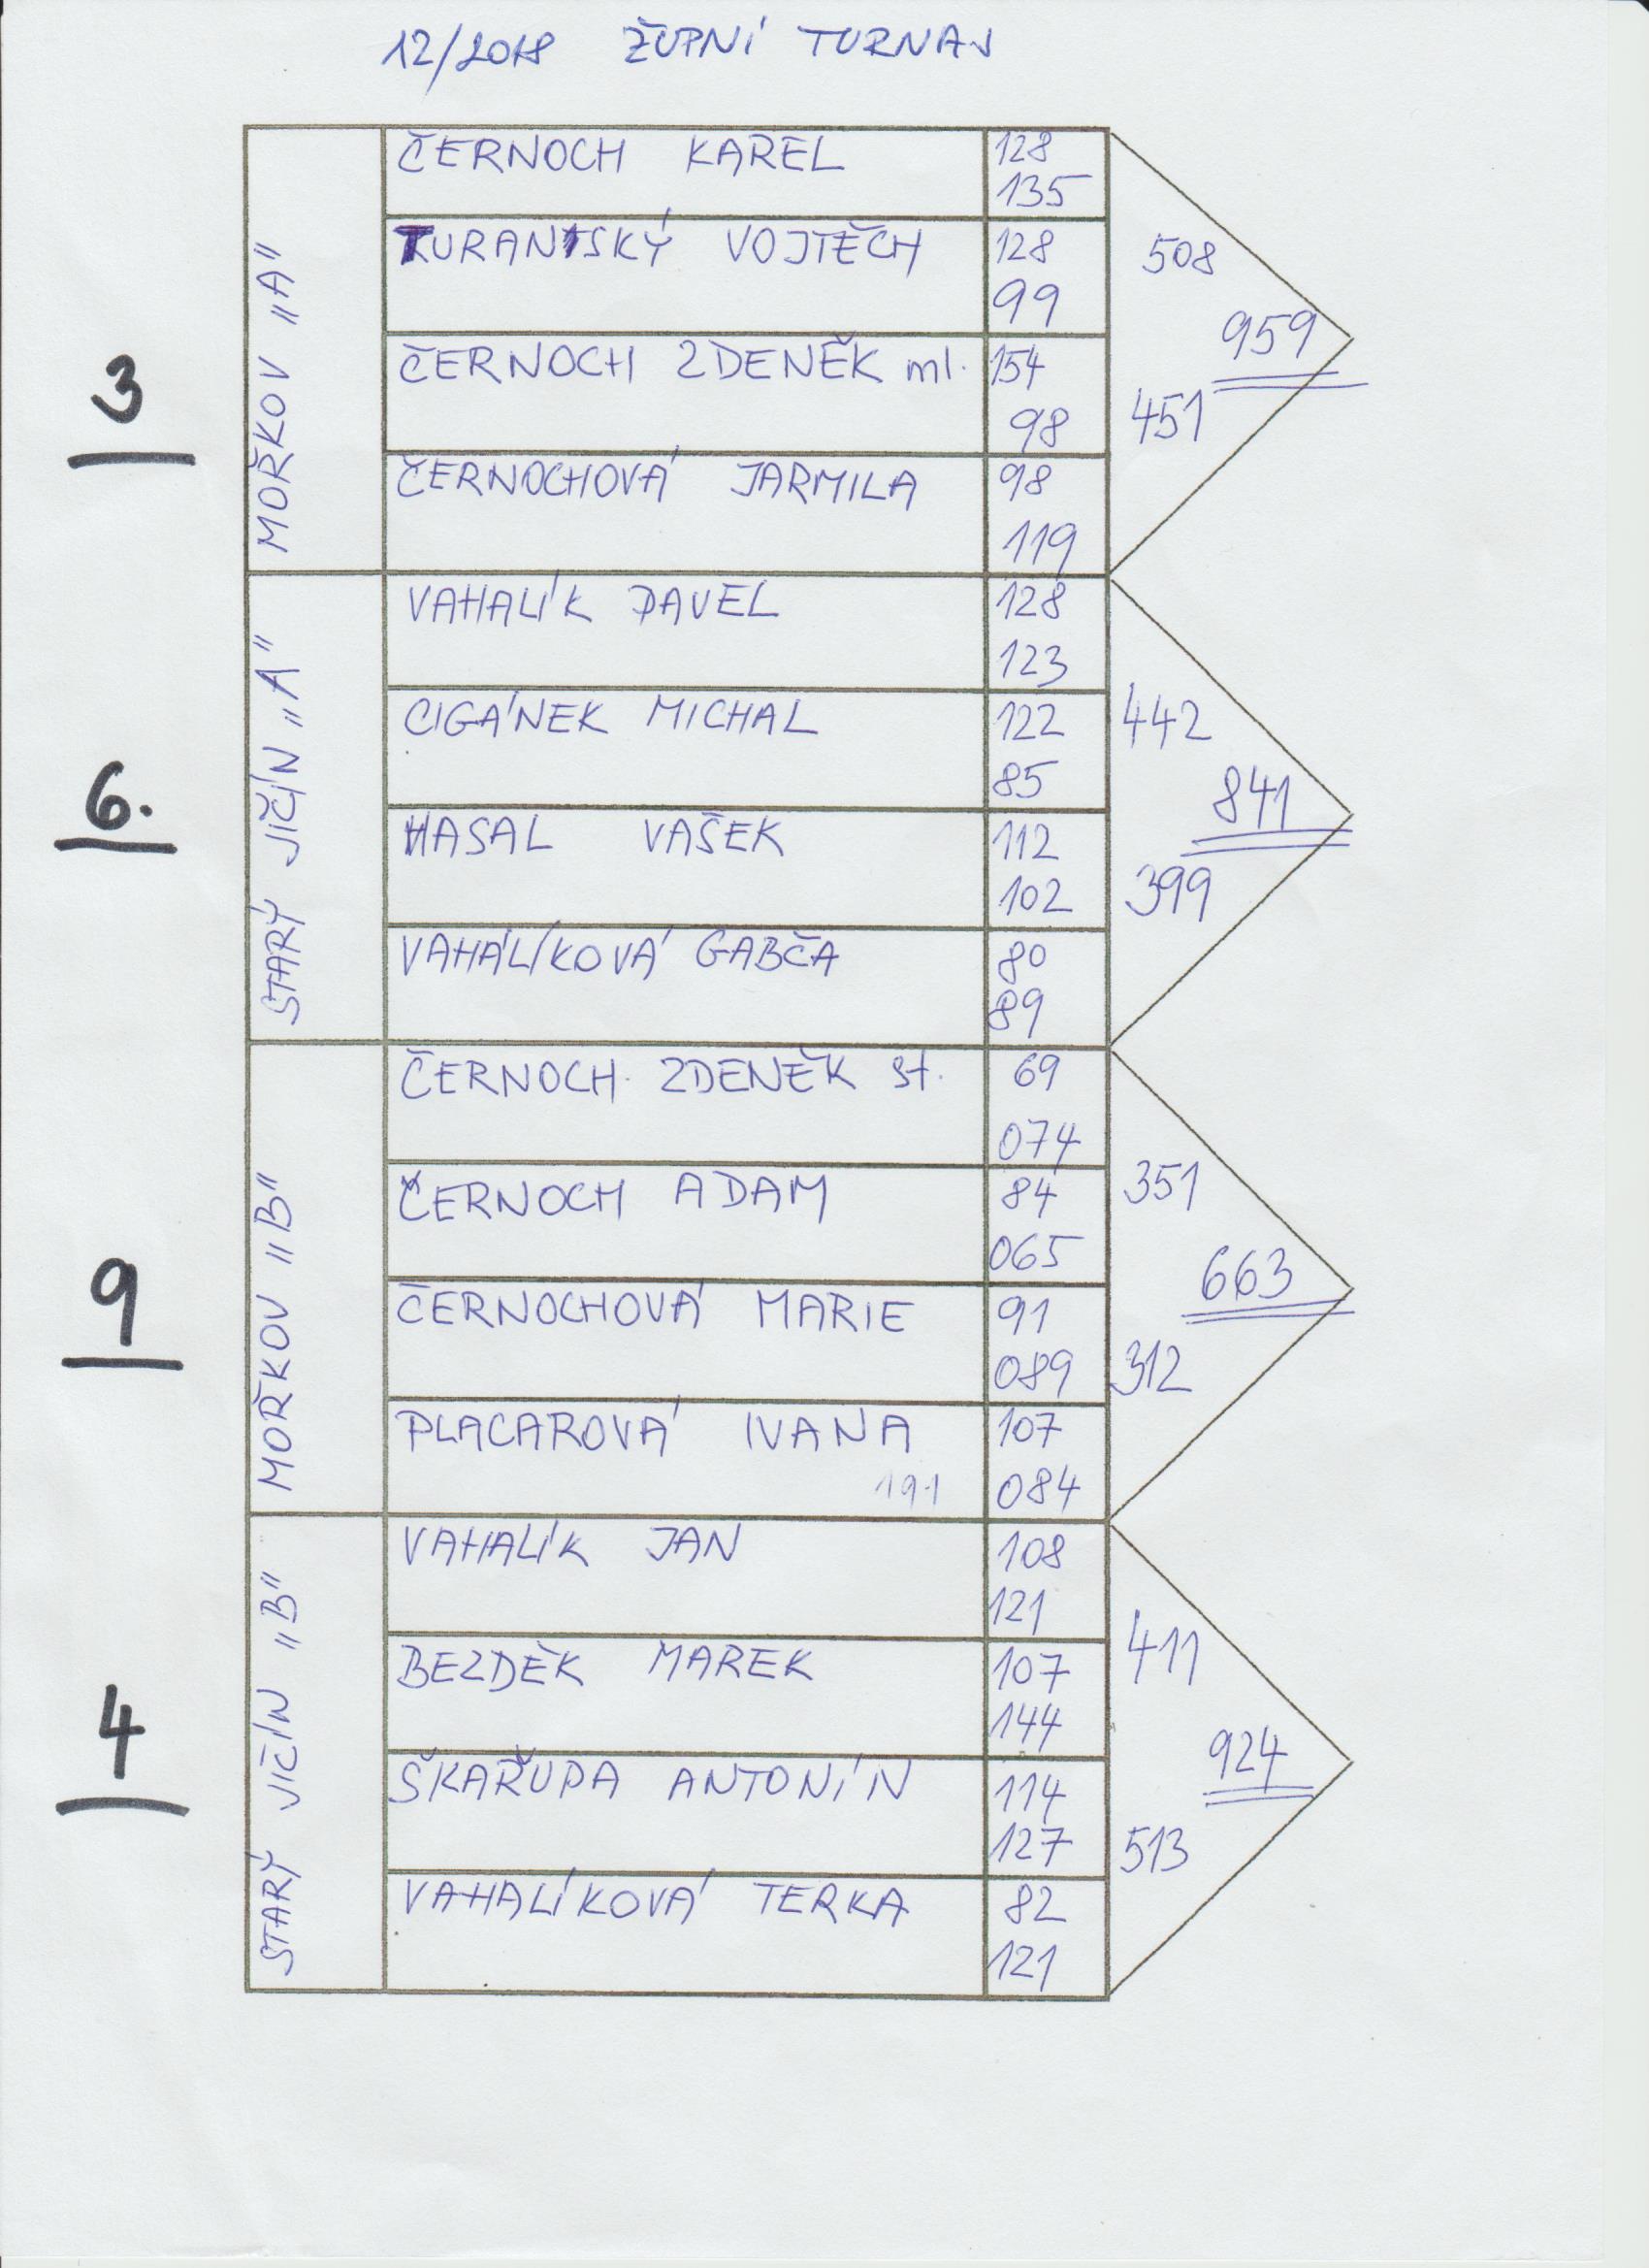 12/2018 ŽUPNÍ TURNAJ
3
MOŘKOV „A“
ČERNOCH KAREL 128
135
VOJTĚCH 128
99
508
959
ČERNOCH ZDENĚK ml. 154
98
451
ČERNOCHOVÁ JARMILA 98
119
6.
STARÝ JIČÍN „A“
VAHALÍK PAVEL 128
123
CIGÁNEK MICHAL 122
85
442
841
HASAL VAŠEK 112
102
399
VAHALÍKOVÁ GABČA 80
89
9
MOŘKOV „B“
ČERNOCH ZDENĚK st. 69
074
ČERNOCH ADAM 84
065
351
663
ČERNOCHOVÁ MARIE 91
089
312
PLACAROVÁ IVANA 107
191 084
4
STARÝ JIČÍN „B“
VAHALÍK JAN 108
121
BEZDĚK MAREK 107
144
411
924
ŠKAŘUPA ANTONÍN 114
127
513
VAHALÍKOVÁ TERKA 82
121